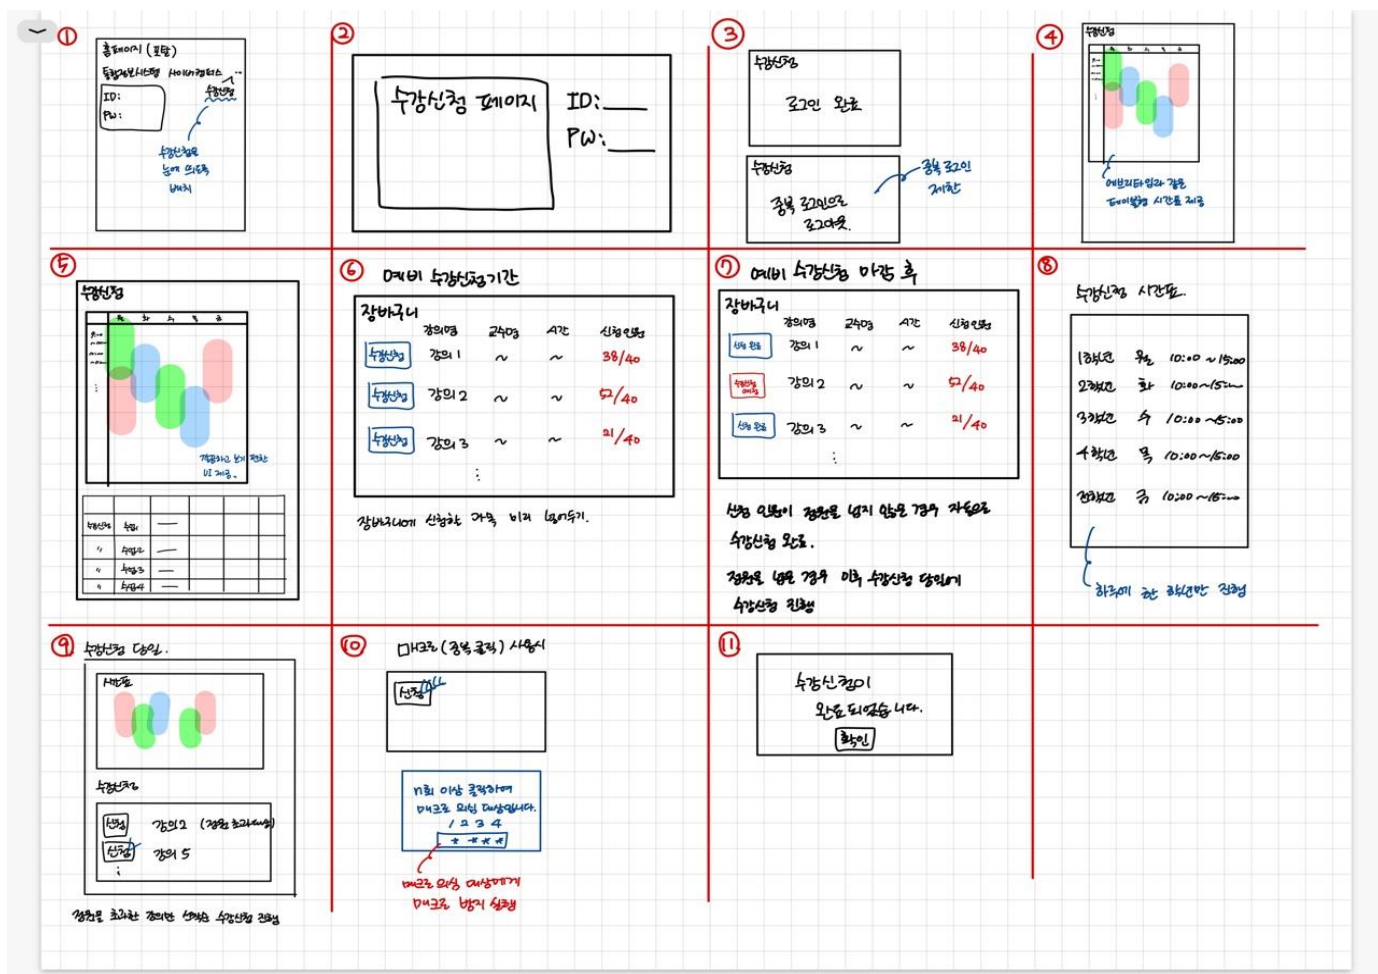 ①
홈페이지 (포탈)
통합정보시스템 사이버캠퍼스 ...
수강신청
ID:
PW:
수강신청을
눈에 띄도록
배치
②
수강신청 페이지
ID:
PW:
③
수강신청
로그인 완료
수강신청
중복 로그인으로
로그아웃.
중복 로그인
제한
④
수강신청
월 화 수 목 금
에브리타임과 같은
테이블형 시간표 제공
⑤
수강신청
월 화 수 목 금
깔끔하고 보기 편한
UI 제공.
수강신청 수업1
" 수업2
" 수업3
" 수업4
⑥ 예비 수강신청기간
장바구니
강의명 교수명 시간 신청인원
수강신청 강의 1 ~ ~ 38/40
수강신청 강의 2 ~ ~ 52/40
수강신청 강의 3 ~ ~ 21/40
장바구니에 신청할 과목 미리 넣어두기.
⑦ 예비 수강신청 마감 후
장바구니
강의명 교수명 시간 신청인원
신청 완료 강의 1 ~ ~ 38/40
수강신청 예정 강의 2 ~ ~ 52/40
신청 완료 강의 3 ~ ~ 21/40
신청 인원이 정원을 넘지 않은 경우 자동으로
수강신청 완료.
정원을 넘은 경우 이후 수강신청 당일에
수강신청 진행
⑧
수강신청 시간표.
1학년 월 10:00 ~ 15:00
2학년 화 10:00~15:00
3학년 수 10:00~15:00
4학년 목 10:00~15:00
전학년 금 10:00~15:00
하루에 한 학년만 진행
⑨ 수강신청 당일.
시간표
수강신청
신청 강의2 (정원 초과대상)
신청 강의 5
정원을 초과한 강의만 선착순 수강신청 진행
⑩ 매크로 (중복 클릭) 사용시
신청
n회 이상 클릭하여
매크로 의심 대상입니다.
1 2 3 4
* * * *
매크로 의심 대상에게
매크로 방지 실행
⑪
수강신청이
완료되었습니다.
확인